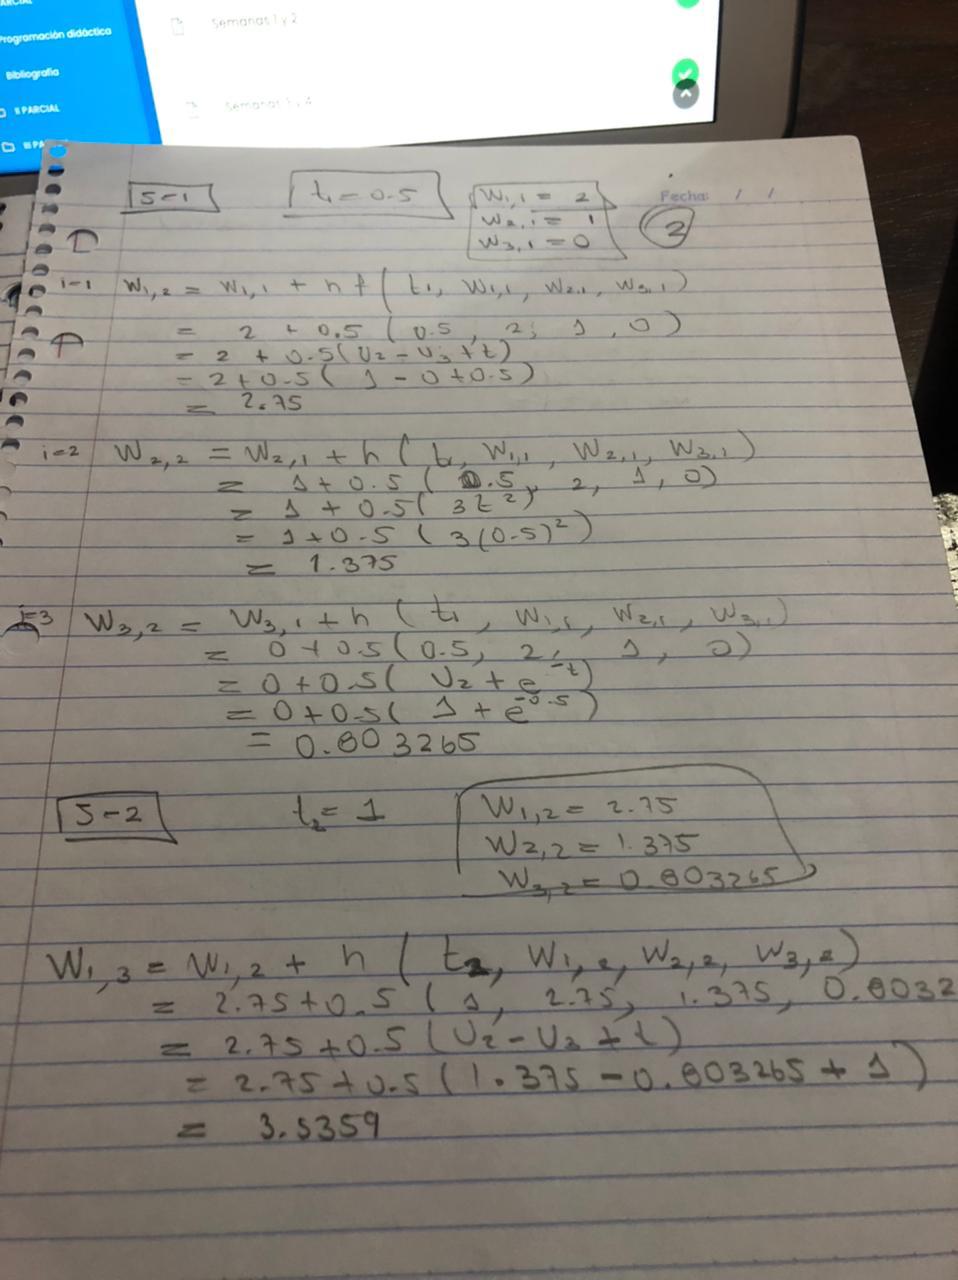 PARCIAL
Programación didáctica
Bibliografía
II PARCIAL
III PA
Semanas 1 y 2
Semanas 3 y 4
S-1
t₁ = 0.5
W₁,₁ = 2
W₂,₁ = 1
W₃,₁ = 0
Fecha: / /
2
i=1 W₁,₂ = W₁,₁ + h f ( t₁, W₁,₁, W₂,₁, W₃,₁)
= 2 + 0.5 ( 0.5, 2, 1, 0)
= 2 + 0.5 (U₂ - U₃ + t)
= 2 + 0.5 ( 1 - 0 + 0.5)
= 2.75
i=2 W₂,₂ = W₂,₁ + h ( t₁, W₁,₁, W₂,₁, W₃,₁)
= 1 + 0.5 ( 0.5, 2, 1, 0)
= 1 + 0.5 ( 3t²)
= 1 + 0.5 ( 3(0.5)²)
= 1.375
i=3 W₃,₂ = W₃,₁ + h ( t₁, W₁,₁, W₂,₁, W₃,₁)
= 0 + 0.5 (0.5, 2, 1, 0)
= 0 + 0.5 ( U₂ + e⁻ᵗ)
= 0 + 0.5 ( 1 + e⁻⁰·⁵)
= 0.803265
S-2
t₂ = 1
W₁,₂ = 2.75
W₂,₂ = 1.375
W₃,₂ = 0.803265
W₁,₃ = W₁,₂ + h ( t₂, W₁,₂, W₂,₂, W₃,₂)
= 2.75 + 0.5 ( 1, 2.75, 1.375, 0.8032
= 2.75 + 0.5 (U₂ - U₃ + t)
= 2.75 + 0.5 (1.375 - 0.803265 + 1)
= 3.5359